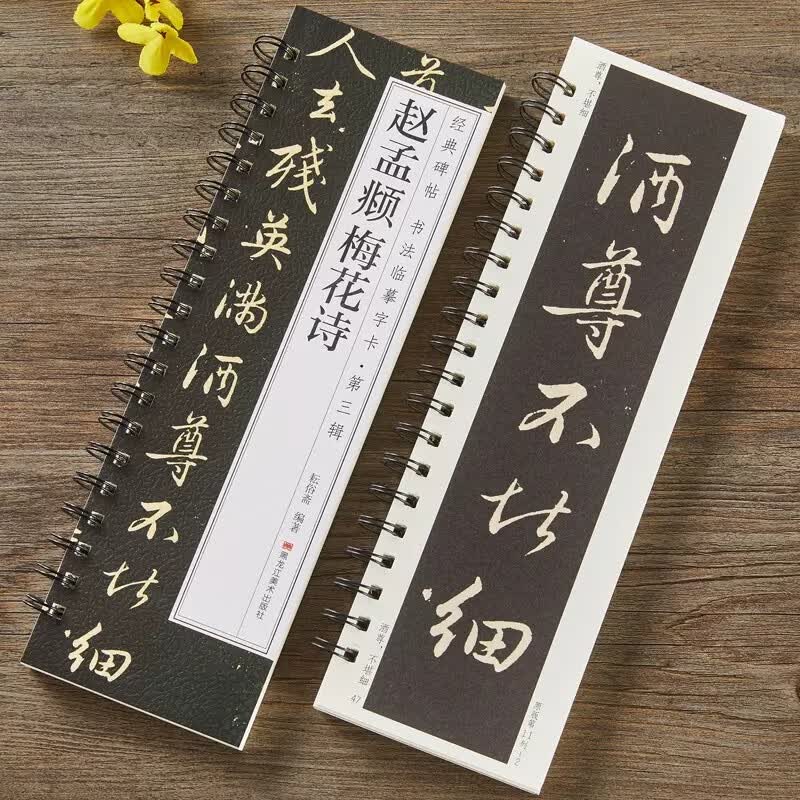 经典碑帖 书法临摹字卡·第三辑
赵孟頫梅花诗
耘俗斋 编著
黑龙江美术出版社
人去残英满酒尊不堪细
酒尊，不堪细
酒尊不堪细
酒尊，不堪细
47